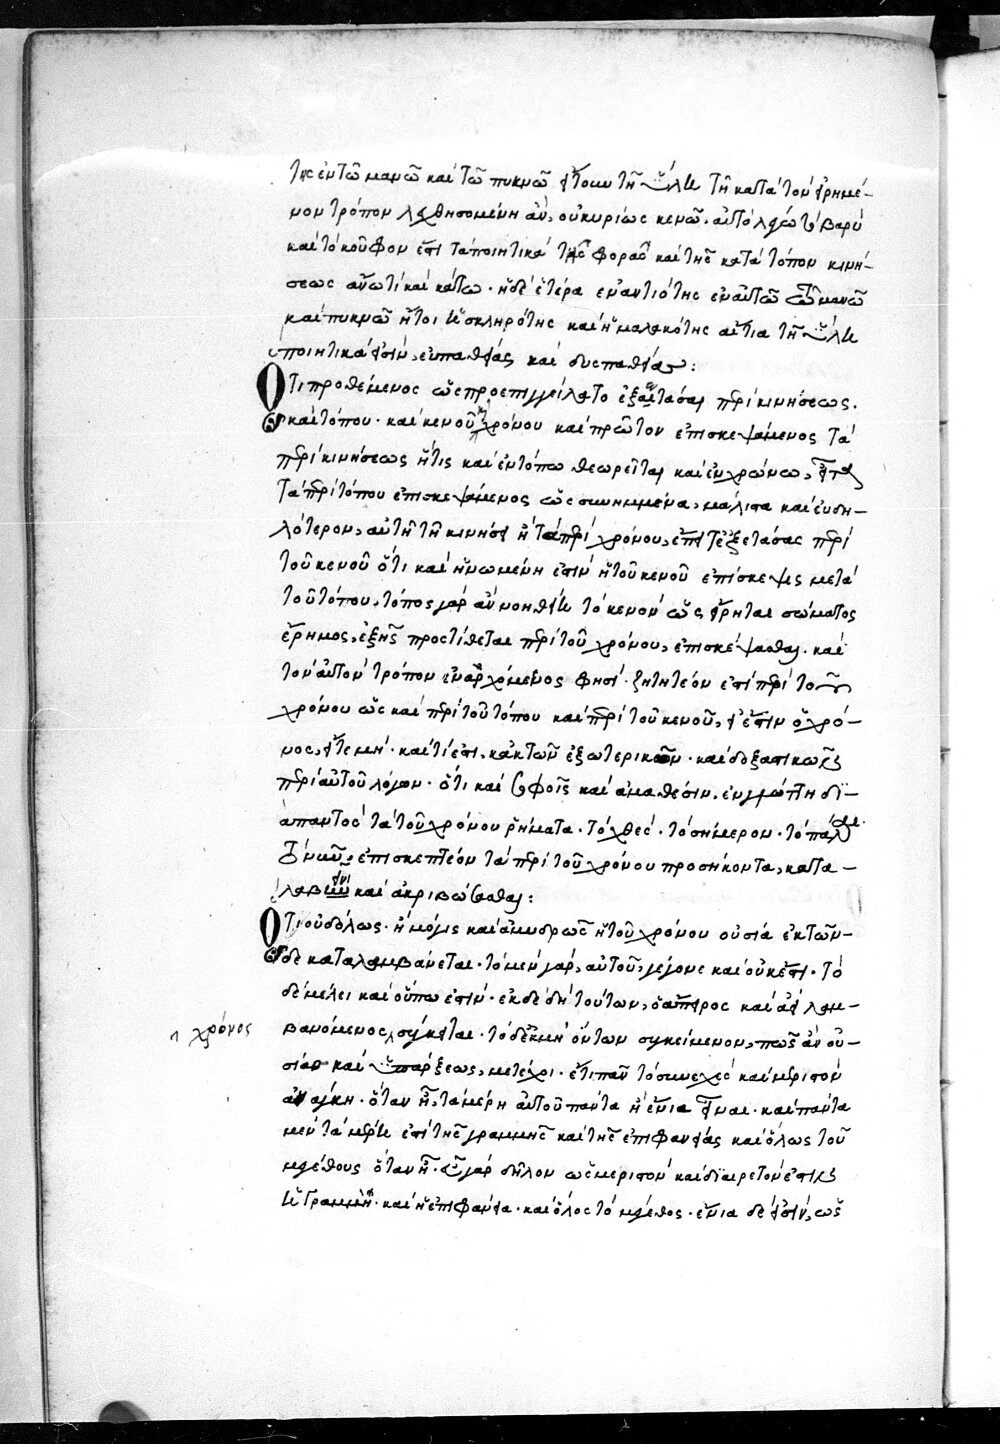 της ἐν τῶ μανῶ καὶ τῶ πυκνῶ ἤτοι τῆ ὕλη τῆ κατὰ τὸν εἰρημέ-
νον τρόπον λεχθησομένη ἂν, οὐ κυρίως κενῶ. αἴτιο λέγω τὸ βαρὺ
καὶ τὸ κοῦφον ἐστὶ τὰ ποιητικὰ τῆς φορᾶς καὶ τῆς κατὰ τόπον κινή-
σεως ἄνω τὲ καὶ κάτω. ἡ δὲ ἑτέρα ἐναντιότης ἐν αὐτῶ τῶ μανῶ
καὶ πυκνῶ ἤτοι ἡ σκληρότης καὶ ἡ μαλακότης αἰτία τῆ ὕλη
ποιητικά εἰσιν, εὐπαθείας καὶ δυσπαθείας:
Ὅτι προθέμενος ὡς προεπηγγείλατο ἐξετάσαι περὶ κινήσεως.
καὶ τόπου. καὶ κενοῦ καὶ χρόνου καὶ πρῶτον ἐπισκεψάμενος τὰ
περὶ κινήσεως ἥτις καὶ ἐν τόπω θεωρεῖται καὶ ἐν χρόνω, εἶτα
τὰ περὶ τόπου ἐπισκεψάμενος ὡς συνημμένα, μάλιστα καὶ εὐδη-
λότερον, αὐτῆ τῆ κινήσει ἢ τὰ περὶ χρόνου, ἔπειτ' ἐξετάσας περὶ
τοῦ κενοῦ ὅτι καὶ ἡνωμένη ἐστὶν ἡ τοῦ κενοῦ ἐπίσκεψις μετὰ
τοῦ τόπου, τόπος γὰρ ἂν νοηθείη τὸ κενὸν ὡς εἴρηται σώματος
ἔρημος, ἑξῆς προστίθεται περὶ τοῦ χρόνου, ἐπισκέψασθαι. καὶ
τὸν αὐτὸν τρόπον ἐναρχόμενος φησί. ζητητέον ἐστὶ περὶ τοῦ
χρόνου ὡς καὶ περὶ τοῦ τόπου καὶ περὶ τοῦ κενοῦ, εἰ ἔστιν ὁ χρό-
νος, εἴτε μή. καὶ τί ἐστι. κἀκ τῶν ἐξωτερικῶν. καὶ δοξαστικῶν
περὶ αὐτοῦ λόγων. ὅτι καὶ σοφοῖς καὶ ἀμαθέσιν, ἐν γλώττη δι-
απαντὸς τὰ τοῦ χρόνου ῥήματα. τὸ χθές. τὸ σήμερον. τὸ πάλαι.
τὸ νῦν, ἐπισκεπτέον τὰ περὶ τοῦ χρόνου προσήκοντα, κατα-
λαβεῖν καὶ ἀκριβώσασθαι:
Ὅτι οὐδόλως. ἢ μόλις καὶ ἀμυδρῶς ἡ τοῦ χρόνου οὐσία ἐκ τῶν-
δε καταλαμβάνεται. τὸ μὲν γὰρ, αὐτοῦ, γέγονε καὶ οὐκέτι. τὸ
δὲ μέλει καὶ οὔπω ἐστίν. ἐκ δὲ δὴ τούτων, ὁ ἄπειρος καὶ ἀεὶ λαμ-
βανόμενος, σύγκειται. τὸ δὲ ἐκ μὴ ὄντων συγκείμενον, πῶς ἂν οὐ-
σίας καὶ ὑπάρξεως, μετέχοι. ἔτι πᾶν τὸ συνεχὲς καὶ μεριστὸν
ἀνάγκη. ὅταν ἦ, τὰ μέρη αὐτοῦ πάντα ἢ ἔνια εἶναι. καὶ πάντα
μὲν τὰ μέρη ἐπὶ τῆς γραμμῆς καὶ τῆς ἐπιφανείας καὶ ὅλως τοῦ
μεγέθους ὅταν ἦ. εὖ γὰρ δῆλον ὡς μεριστὸν καὶ διαιρετὸν ἐστιν
ἡ γραμμή. καὶ ἡ ἐπιφάνεια. καὶ ὅλος τὸ μέγεθος. ἔνια δέ εἰσιν, ὡς
χρόνος